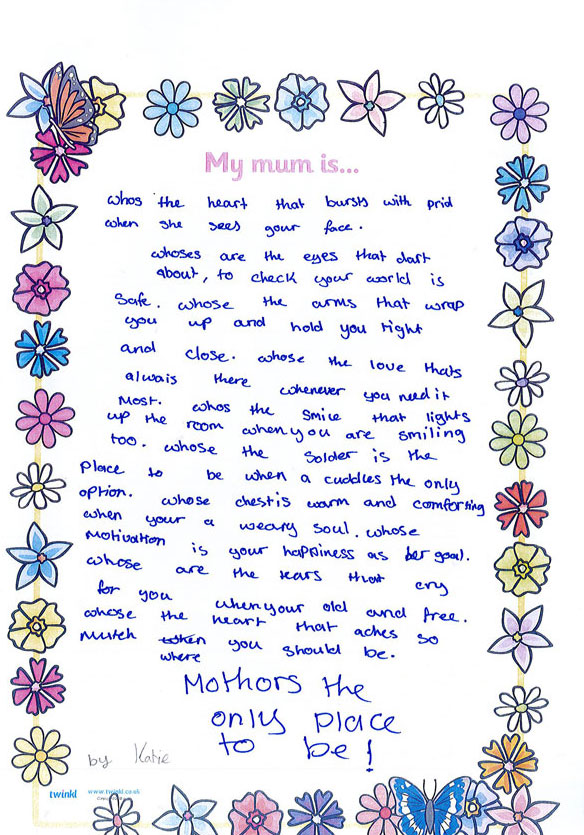 My mum is...
whos the heart that bursts with prid
when she sees your face.
whoses are the eyes that dart
about, to check your world is
Safe. whose the arms that wrap
you up and hold you tight
and close. whose the love thats
alwais there whenever you need it
Most. whos the smile that lights
up the room when you are smiling
too. whose the Solder is the
Place to be when a cuddles the only
option. whose chest is warm and comforting
when your a weary soul. whose
motivation is your happiness as her goal.
whose are the tears that cry
for you when your old and free.
whose the heart that aches so
mutch you should be.
where
Mothors the
only place
to be!
by Katie
twinkl
www.twinkl.co.uk